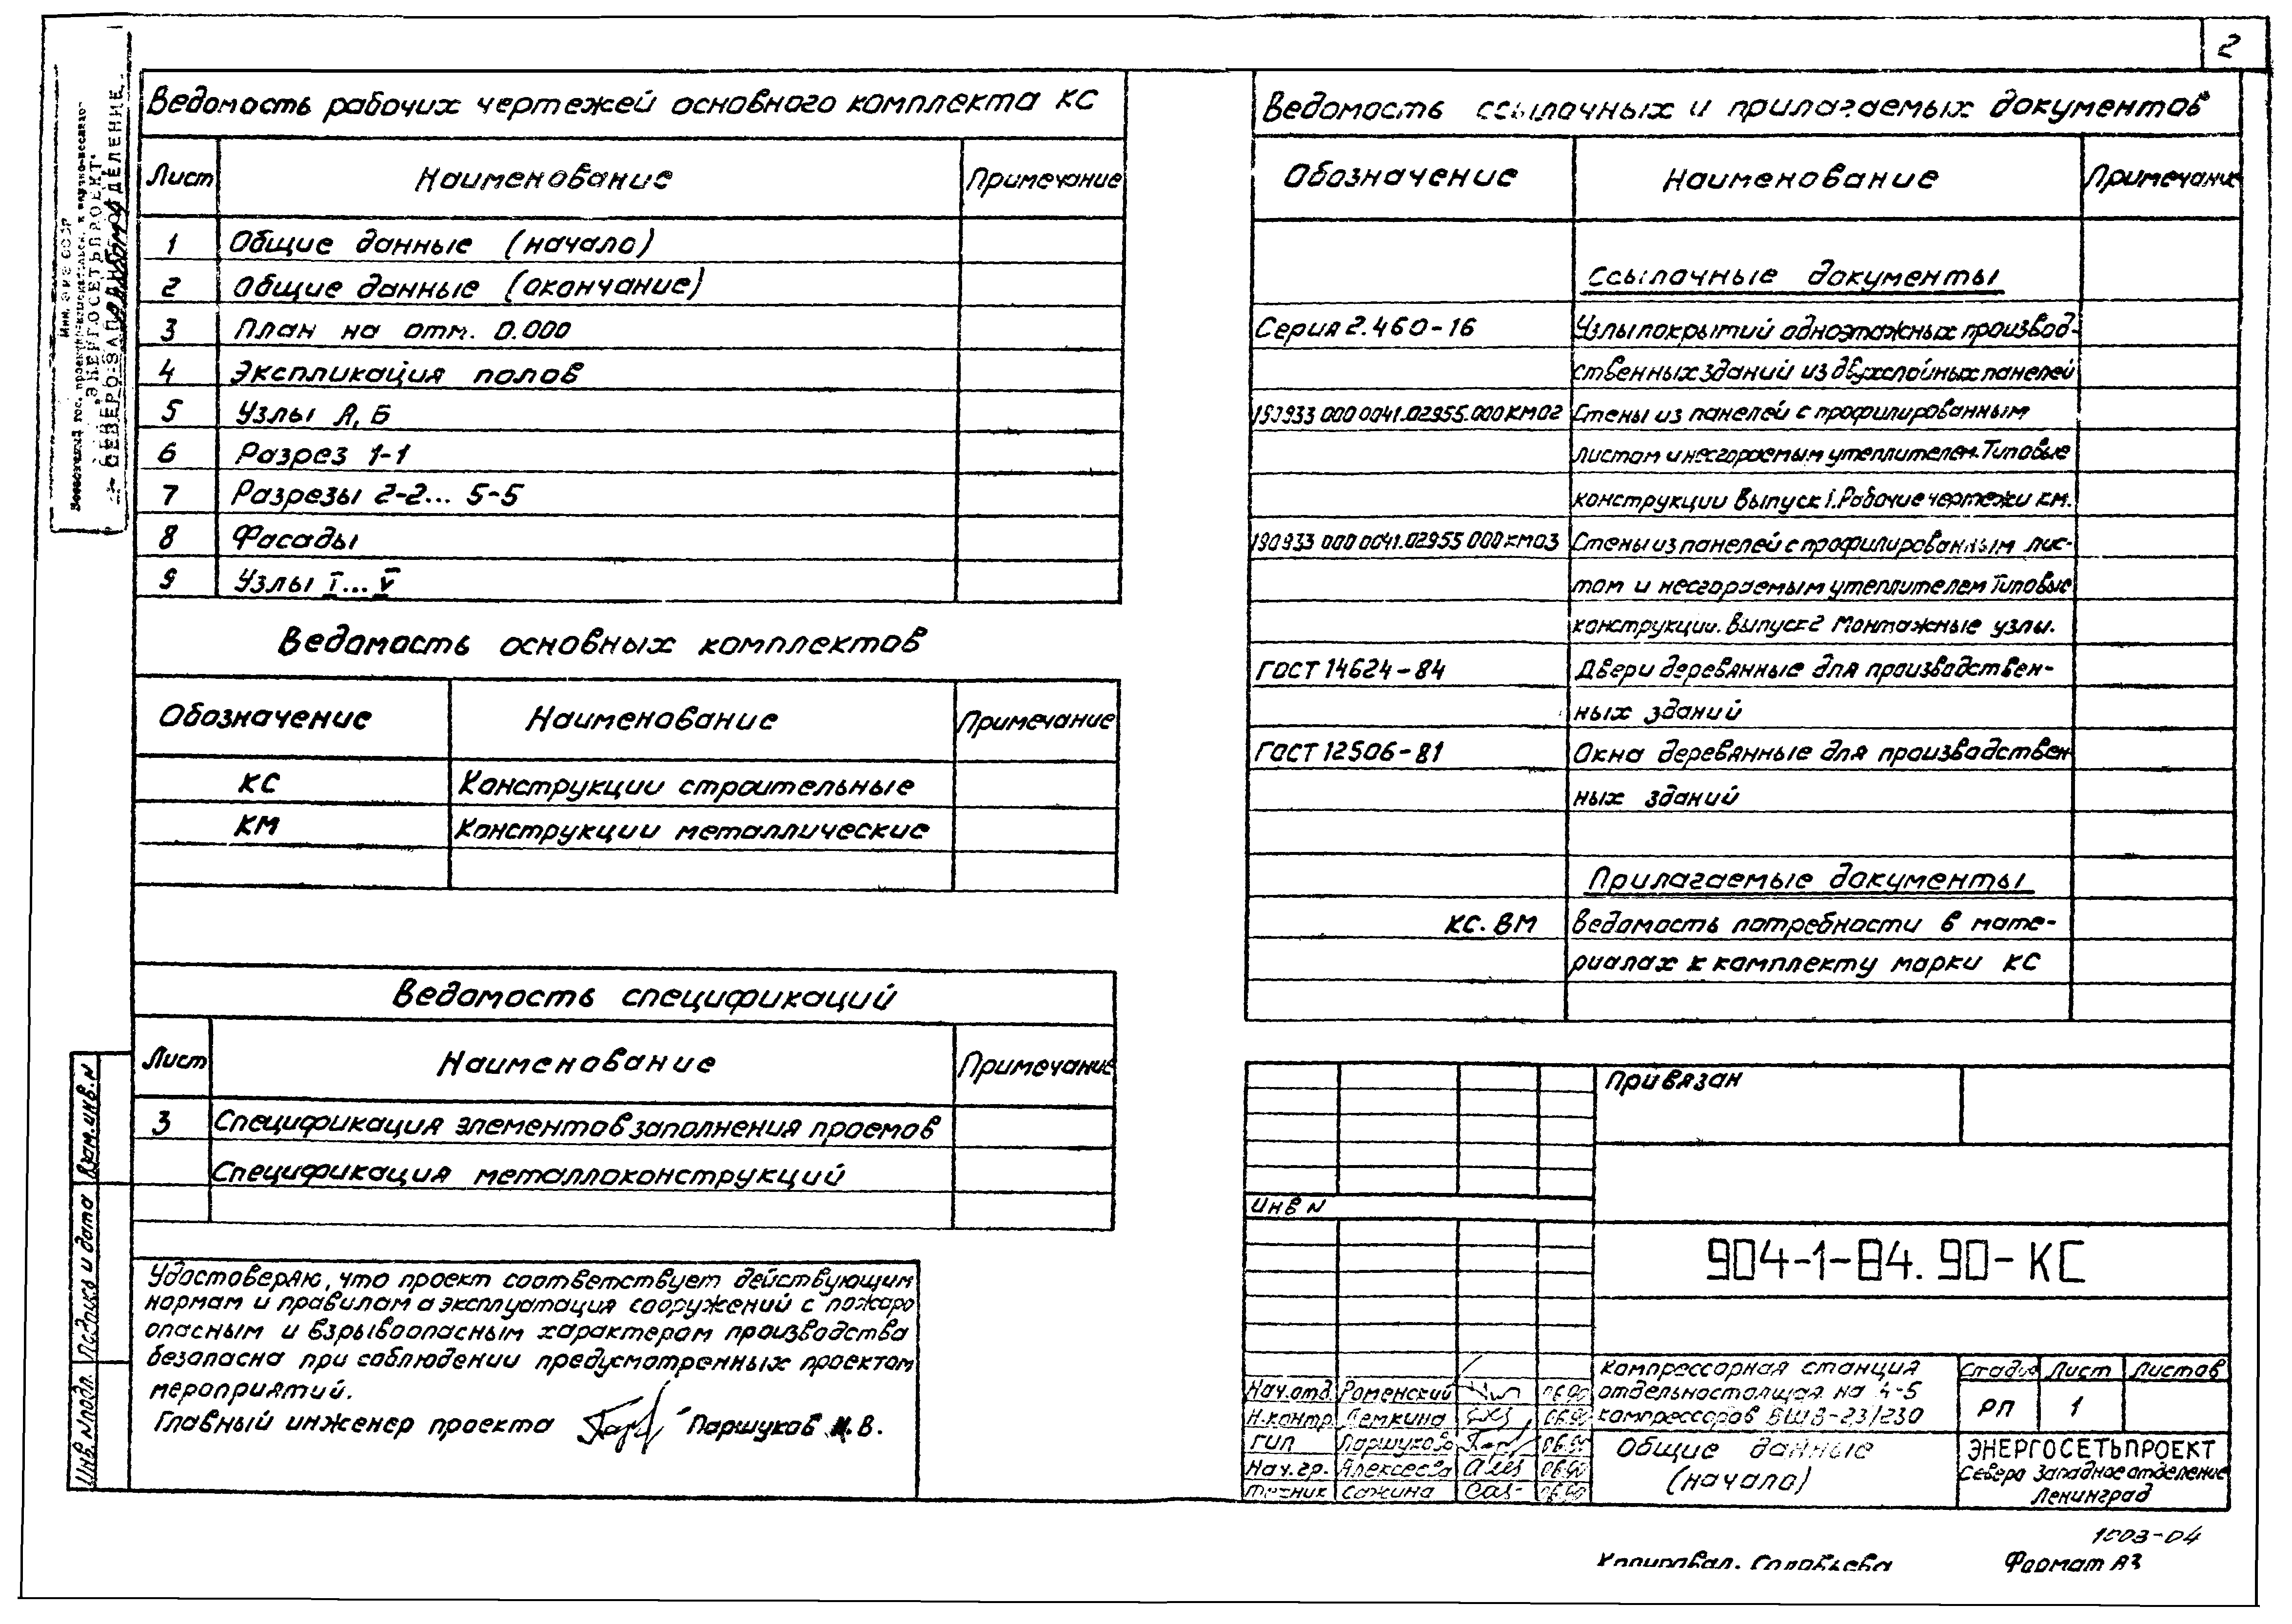 2
Мин. Э и Э СССР
"ЭНЕРГОСЕТЬПРОЕКТ"
СЕВЕРО-ЗАПАДНОЕ ОТДЕЛЕНИЕ
Ведомость рабочих чертежей основного комплекта КС
Лист Наименование Примечание
1 Общие данные (начало)
2 Общие данные (окончание)
3 План на отм. 0.000
4 Экспликация полов
5 Узлы А, Б
6 Разрез 1-1
7 Разрезы 2-2... 5-5
8 Фасады
9 Узлы I... V
Ведомость основных комплектов
Обозначение Наименование Примечание
КС Конструкции строительные
КМ Конструкции металлические
Ведомость спецификаций
Лист Наименование Примечание
3 Спецификация элементов заполнения проемов
Спецификация металлоконструкций
Удостоверяю, что проект соответствует действующим
нормам и правилам а эксплуатация сооружений с пожаро
опасным и взрывоопасным характером производства
безопасна при соблюдении предусмотренных проектом
мероприятий.
Главный инженер проекта Паршуков И.В.
Взам.инв.N
Подпись и дата
Инв.Nподл.
Ведомость ссылочных и прилагаемых документов
Обозначение Наименование Примечание
Ссылочные документы
Серия 2.460-16 Узлы покрытий одноэтажных производ-
ственных зданий из двухслойных панелей
190933 000 0041.02955.000КМ02 Стены из панелей с профилированным
листом и несгораемым утеплителем. Типовые
конструкции Выпуск 1. Рабочие чертежи КМ.
190933 000 0041.02955 000КМ03 Стены из панелей с профилированным лис-
том и несгораемым утеплителем Типовые
конструкции. Выпуск 2 Монтажные узлы.
ГОСТ 14624-84 Двери деревянные для производствен-
ных зданий
ГОСТ 12506-81 Окна деревянные для производствен
ных зданий
Прилагаемые документы
КС. ВМ Ведомость потребности в мате-
риалах к комплекту марки КС
Привязан
Инв N
904-1-84.90-КС
Компрессорная станция
отдельностоящая на 4-5
компрессоров ВШВ-23/230
Стадия Лист Листов
РП 1
Нач.отд. Роменский 06.90
Н.контр. Демкина 06.90
ГИП Паршуков 06.90
Нач.гр. Алексеева 06.90
Техник Сажина 06.90
Общие данные
(начало)
ЭНЕРГОСЕТЬПРОЕКТ
Северо Западное отделение
Ленинград
1003-04
Копировал. Соловьева Формат А3